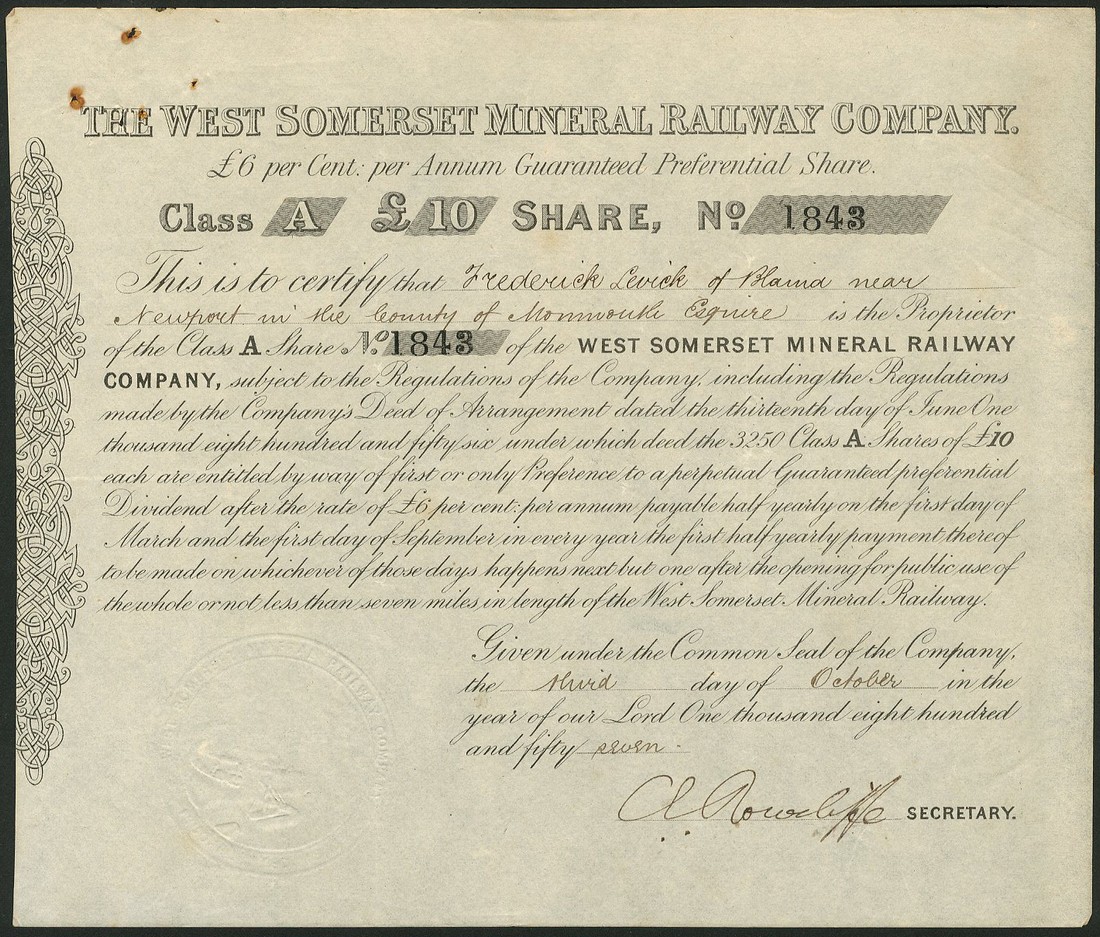 THE WEST SOMERSET MINERAL RAILWAY COMPANY.
£6 per Cent: per Annum Guaranteed Preferential Share.
Class A £10 SHARE, No. 1843
This is to certify that Frederick Levick of Blaina near
Newport in the County of Monmouth Esquire is the Proprietor
of the Class A Share No. 1843 of the WEST SOMERSET MINERAL RAILWAY
COMPANY, subject to the Regulations of the Company, including the Regulations
made by the Company's Deed of Arrangement dated the thirteenth day of June One
thousand eight hundred and fifty six under which deed the 3250 Class A Shares of £10
each are entitled by way of first or only Preference to a perpetual Guaranteed preferential
Dividend after the rate of £6 per cent: per annum payable half yearly on the first day of
March and the first day of September in every year the first half yearly payment thereof
to be made on whichever of those days happens next but one after the opening for public use of
the whole or not less than seven miles in length of the West Somerset Mineral Railway.
Given under the Common Seal of the Company,
the third day of October in the
year of our Lord One thousand eight hundred
and fifty seven.
Rowcliffe SECRETARY.
RAILWAY COMPANY